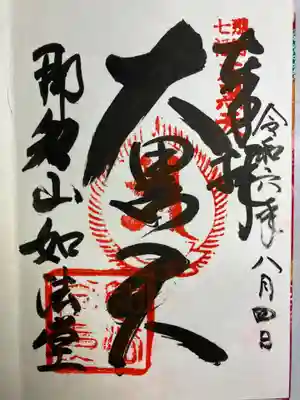 令和六年八月四日
奉拝
大黒天
那智山如法堂